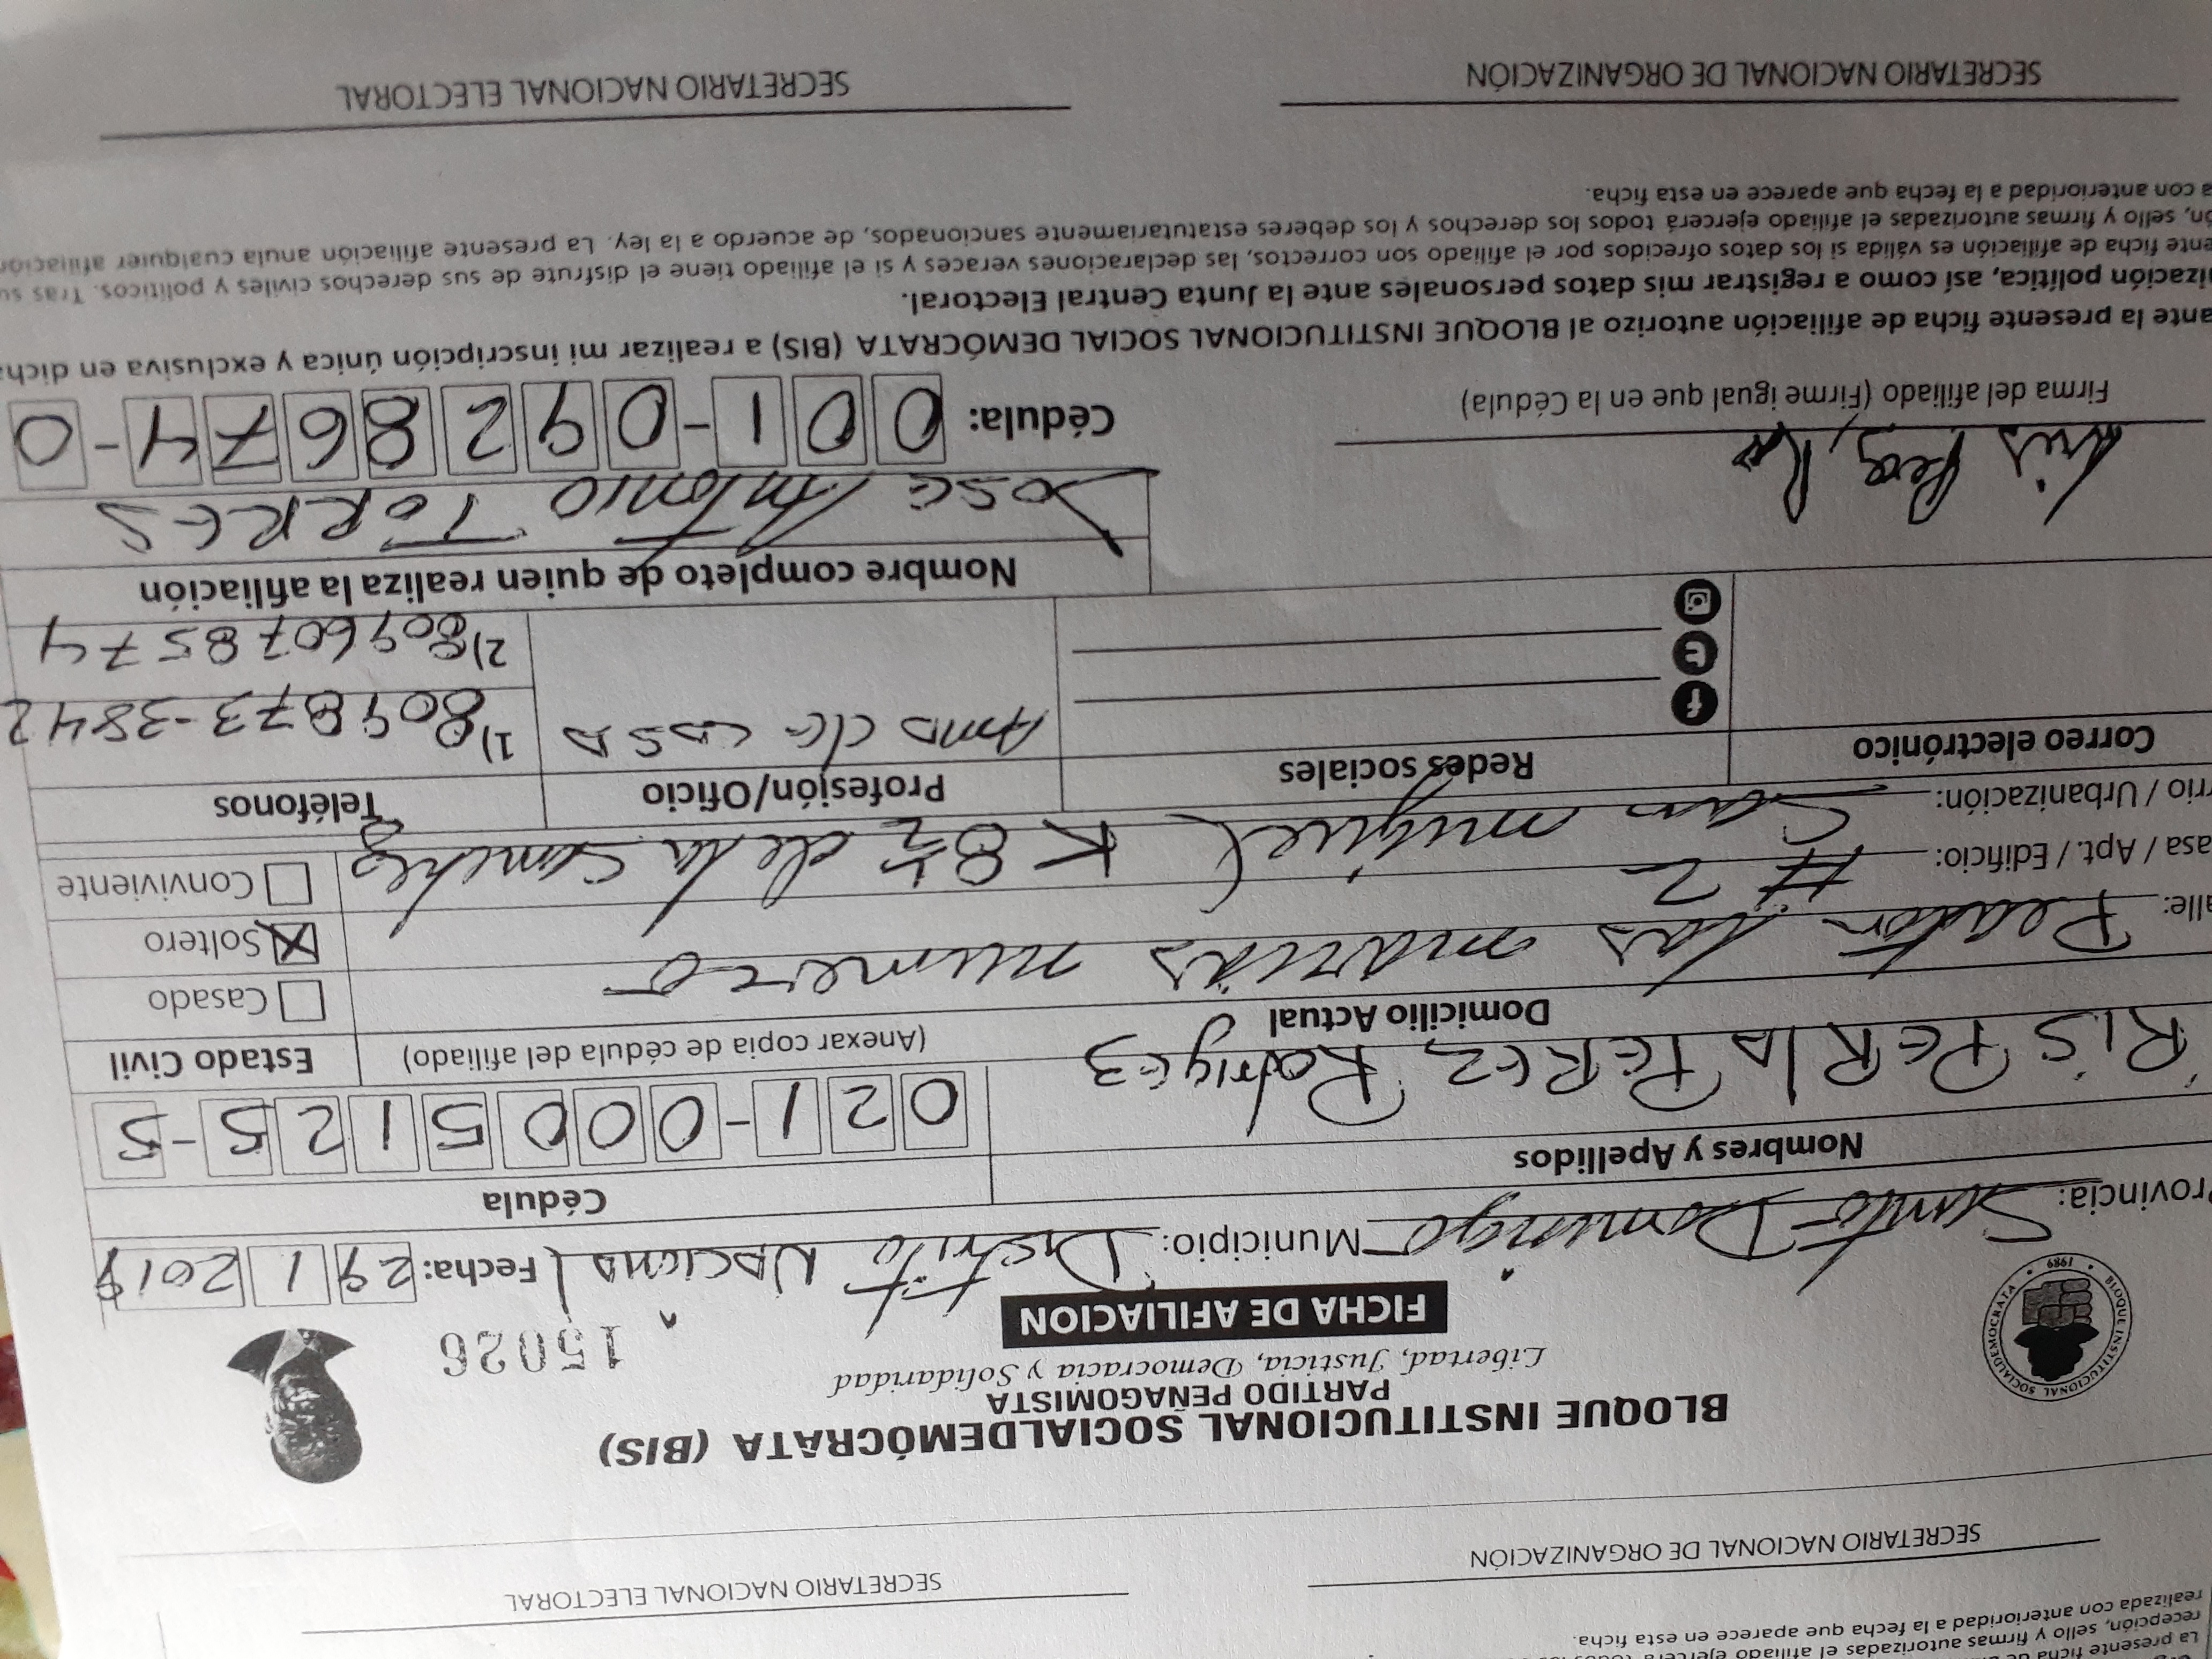 La presente ficha de
recepción, sello y firmas autorizadas el afiliado ejercerá todos los
realizada con anterioridad a la fecha que aparece en esta ficha.
SECRETARIO NACIONAL DE ORGANIZACIÓN SECRETARIO NACIONAL ELECTORAL
BLOQUE INSTITUCIONAL SOCIALDEMOCRATA • 1989 •
BLOQUE INSTITUCIONAL SOCIALDEMÓCRATA (BIS)
PARTIDO PEÑAGOMISTA
Libertad, Justicia, Democracia y Solidaridad
15026
FICHA DE AFILIACION
rovincia: Santo Domingo Municipio: Distrito Nacional Fecha: 29 1 2019
Nombres y Apellidos Cédula
RIS PERLA PEREZ Rodrigez 021-0005125-5
Domicilio Actual (Anexar copia de cédula del afiliado) Estado Civil
alle: Peaton las marias numero Casado
asa / Apt. / Edificio: # 2 Soltero
rrio / Urbanización: San miguel K 8½ de la Sanchez Conviviente
Correo electrónico Redes sociales Profesión/Oficio Teléfonos
Ama de casa 1) 809 873-3842
2) 8096078574
Nombre completo de quien realiza la afiliación
Jose Antonio TORRES
Firma del afiliado (Firme igual que en la Cédula) Cédula: 001-0928674-0
ante la presente ficha de afiliación autorizo al BLOQUE INSTITUCIONAL SOCIAL DEMÓCRATA (BIS) a realizar mi inscripción única y exclusiva en dicha
ización política, así como a registrar mis datos personales ante la Junta Central Electoral.
ente ficha de afiliación es válida si los datos ofrecidos por el afiliado son correctos, las declaraciones veraces y si el afiliado tiene el disfrute de sus derechos civiles y políticos. Tras su
ón, sello y firmas autorizadas el afiliado ejercerá todos los derechos y los deberes estatutariamente sancionados, de acuerdo a la ley. La presente afiliación anula cualquier afiliación
a con anterioridad a la fecha que aparece en esta ficha.
SECRETARIO NACIONAL DE ORGANIZACIÓN SECRETARIO NACIONAL ELECTORAL